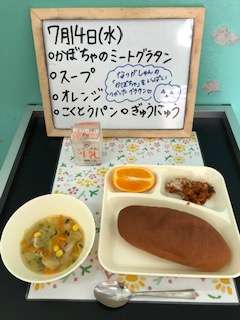 7月14日(水)
○かぼちゃのミートグラタン
○スープ
○オレンジ
○こくとうパン ○ぎゅうにゅう
なつがしゅんの
かぼちゃをいっぱい
つかった グラタン